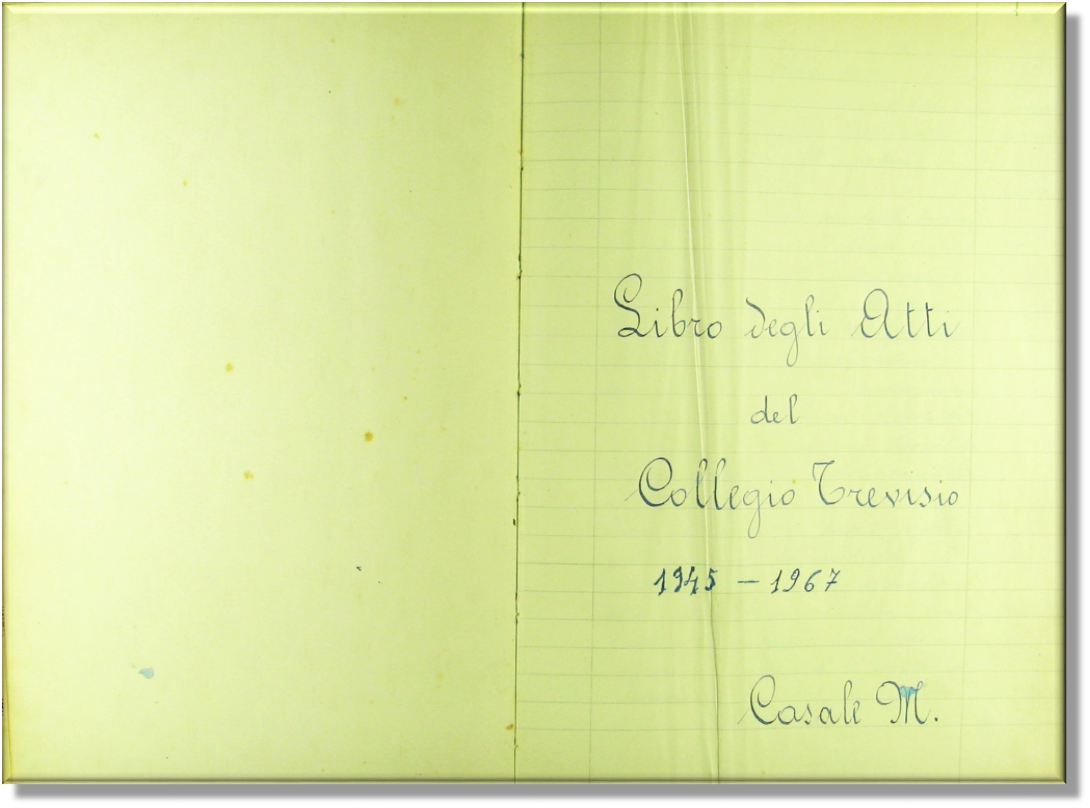 Libro degli Atti
del
Collegio Trevisio
1945 - 1967
Casale M.